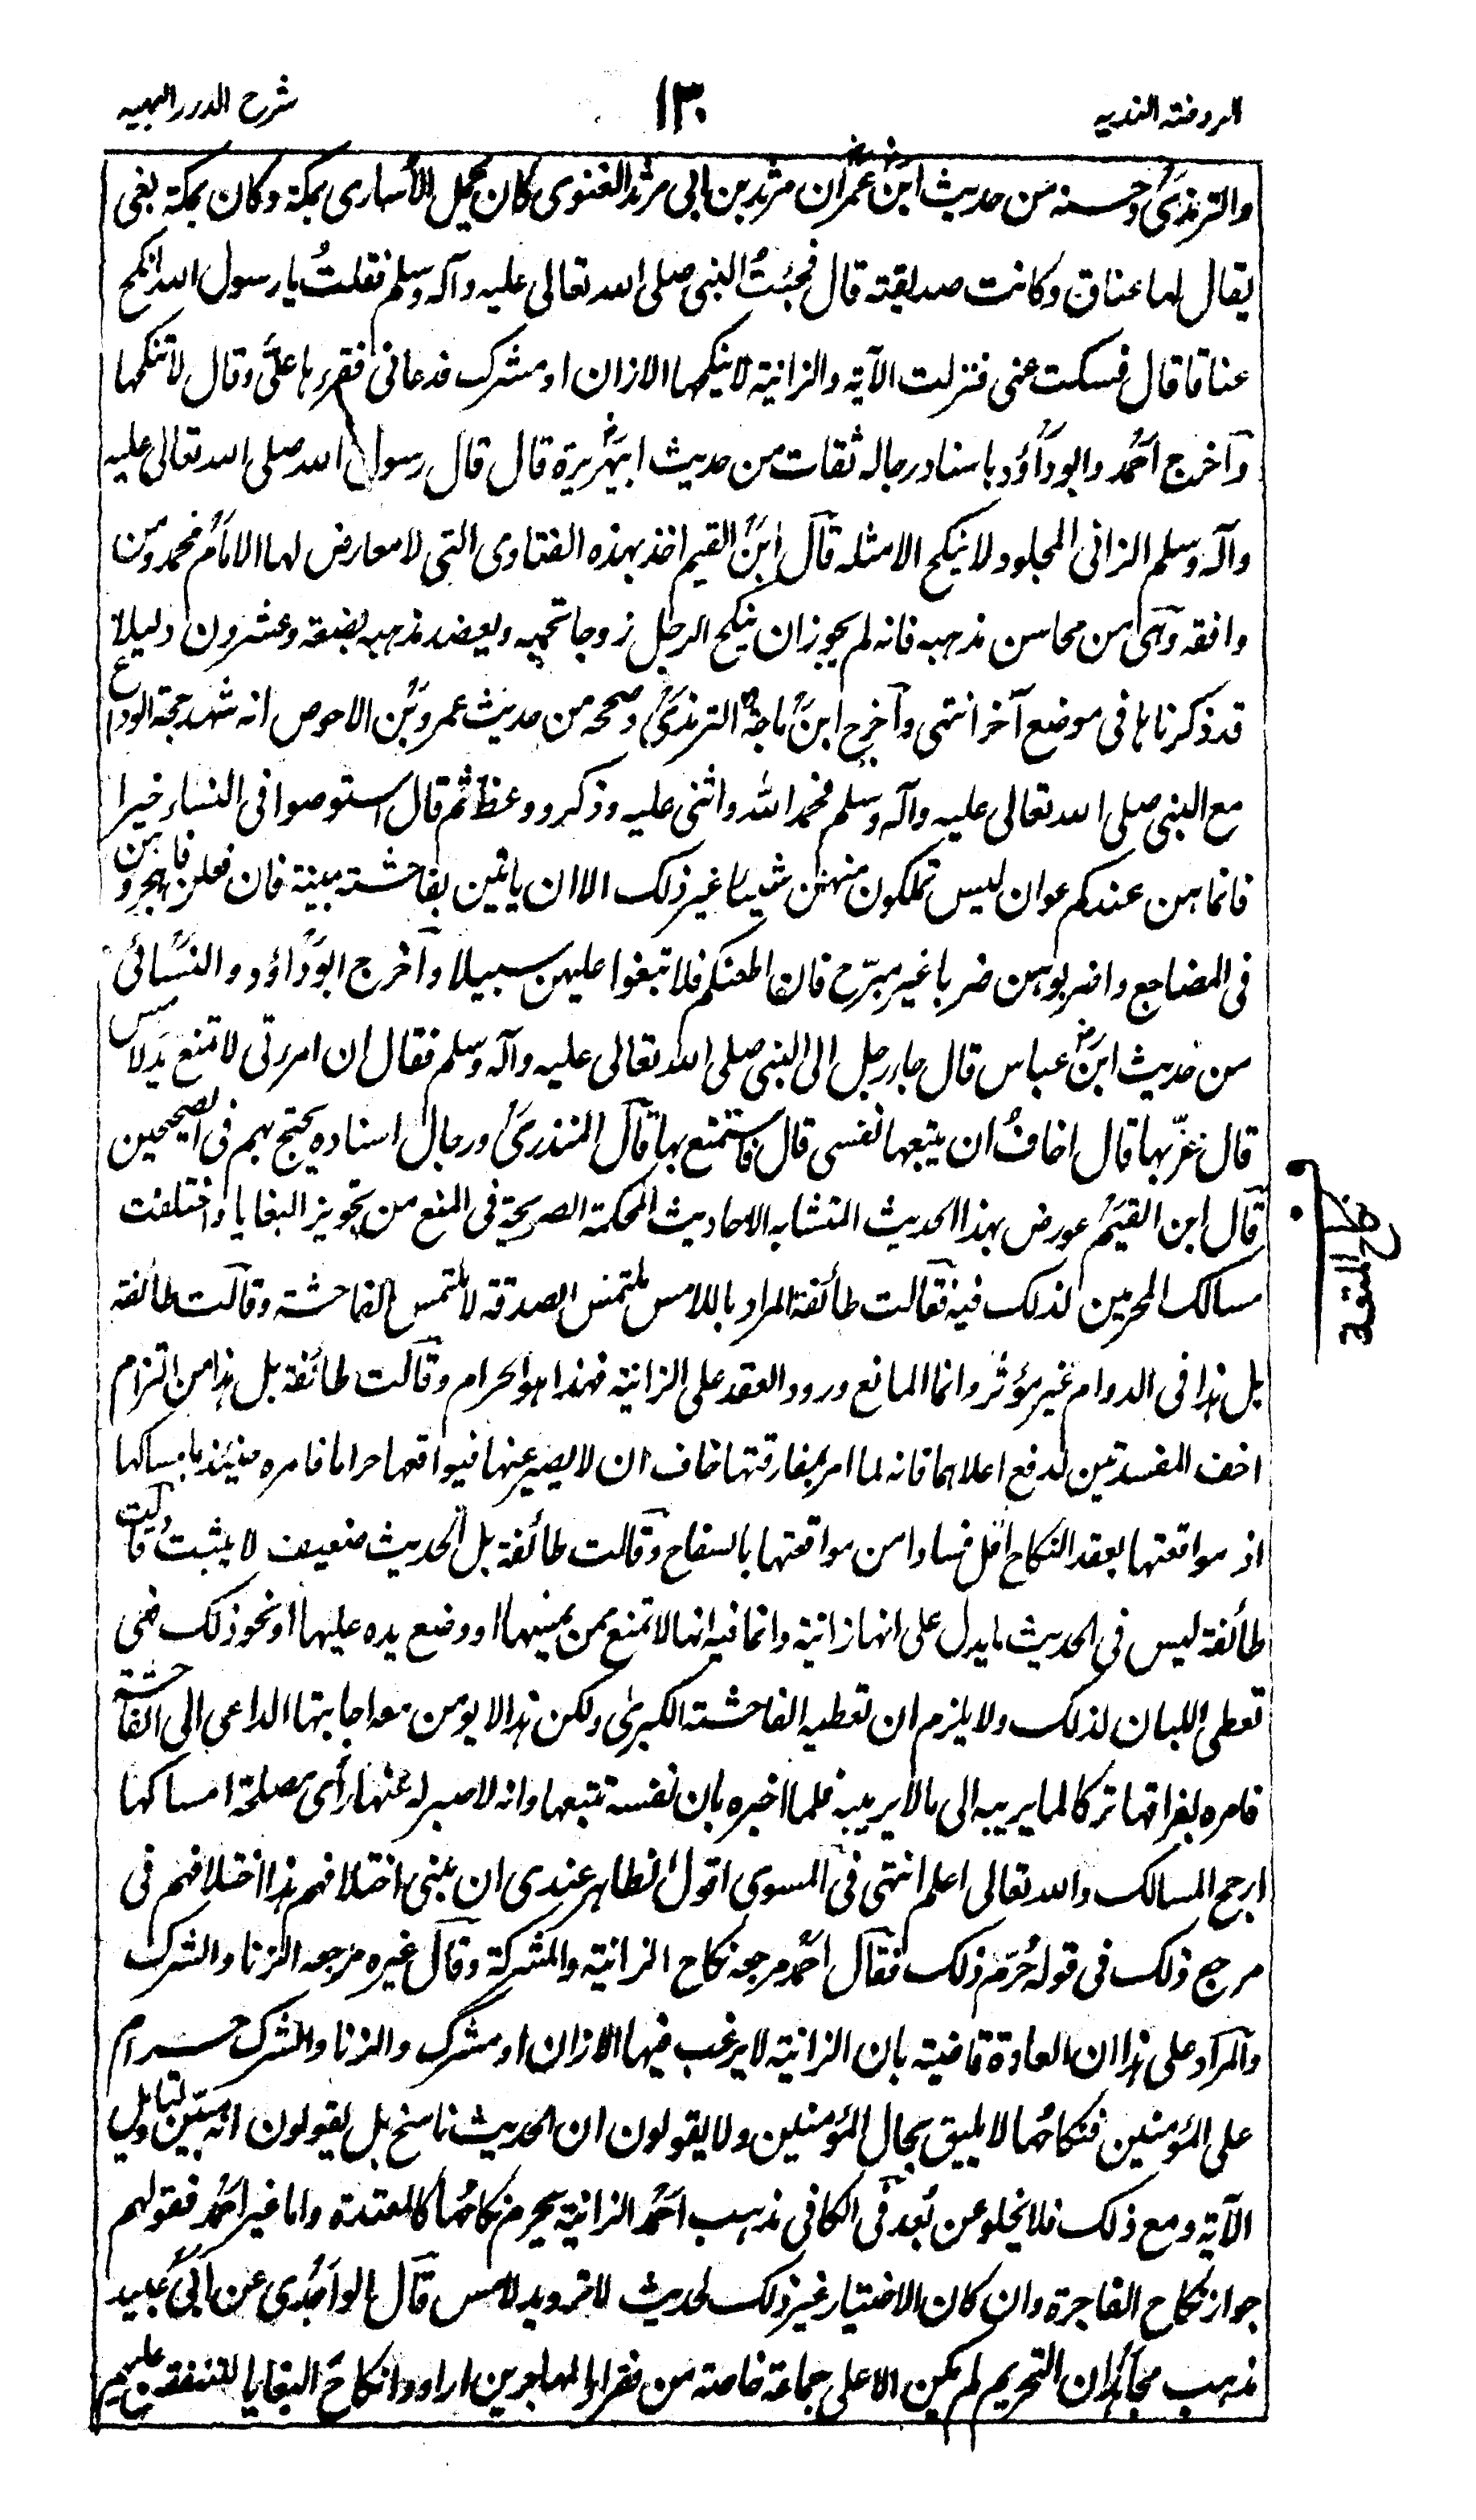 الروضة الندية
١٣٠
شرح الدرر البهية
والترمذى وحسنه من حديث ابن عمر ان مرثد بن ابى مرثد الغنوى كان يحمل الأسارى بمكة وكان بمكة بغى
يقال لها عناق وكانت صديقته قال فجئتُ النبى صلى الله تعالى عليه وآله وسلم فقلتُ يا رسول الله انكح
عناقا قال فسكت عنى فنزلت الآية والزانية لا ينكحها الا زان او مشرك فدعانى فقرءها علىَّ وقال لا تنكحها
وآخرج احمد وابوداؤد باسناد رجاله ثقات من حديث ابيهريرة قال قال رسول الله صلى الله تعالى عليه
وآله وسلم الزانى المجلود لا ينكح الا مثله قال ابن القيم اخذ بهذه الفتاوى التى لا معارض لها الامام احمد ومن
وافقه وهى من محاسن مذهبه فانه لم يجوز ان ينكح الرجل زوجا تحبه ويعضد مذهبه بضعة وعشرون دليلا
قد ذكرناها فى موضع آخر انتهى وآخرج ابن ماجة والترمذى وصححه من حديث عمرو بن الاحوص انه شهد حجة الوداع
مع النبى صلى الله تعالى عليه وآله وسلم فحمد الله واثنى عليه وذكر ووعظ ثم قال استوصوا فى النساء خيرا
فانما هن عندكم عوان ليس تملكون منهن شيئا غير ذلك الا ان ياتين بفاحشة مبينة فان فعلن فاهجروهن
فى المضاجع واضربوهن ضربا غير مبرّح فان اطعنكم فلا تبغوا عليهن سبيلا وآخرج ابوداؤد والنسائى
من حديث ابن عباس قال جاء رجل الى النبى صلى الله تعالى عليه وآله وسلم فقال ان امرءتى لا تمنع يد لامس
قال غرّبها قال اخافُ ان يتبعها نفسى قال فاستمتع بها قال المنذرى ورجال اسناده يحتج بهم فى الصحيحين
قال ابن القيم عورض بهذا الحديث المتشابه الاحاديث المحكمة الصريحة فى المنع من تجويز البغايا واختلفت
مسالك المحرمين لذلك فيه فقالت طائفة المراد باللامس ملتمس الصدقة لا ملتمس الفاحشة وقالت طائفة
بل هذا فى الدوام غير مؤثر وانما المانع ورود العقد على الزانية فهذا هو الحرام وقالت طائفة بل هذا من التزام
اخف المفسدتين لدفع اعلاهما فانه لما امر بمفارقتها خاف ان لا يصبر عنها فيواقعها حراما فامره حينئذ بامساكها
اذ مواقعتها بعقد النكاح اقل فسادا من مواقعتها بالسفاح وقالت طائفة بل الحديث ضعيف لا يثبتُ وقالت
طائفة ليس فى الحديث ما يدل على انها زانية وانما فيه انها لا تمنع ممن يمسها او وضع يده عليها او نحو ذلك فهى
تعطى الليان لذلك ولا يلزم ان تعطيه الفاحشة الكبرى ولكن هذا لا يومن معه اجابتها الداعى الى الفاحشة
فامره بفراقها تركا لما يريبه الى ما لا يريبه فلما اخبره بان نفسه تتبعها وانه لا صبر له عنها رأى مصلحة امساكها
ارجح المسالك والله تعالى اعلم انتهى فى المسوى اقول الظاهر عندى ان مبنى اختلافهم هذا اختلافهم فى
مرجع ذلك فى قوله حُرّم ذلك فقال احمد مرجعه نكاح الزانية والمشركة وقال غيره مرجعه الزنا والشرك
والمراد على هذا ان العادة قاضية بان الزانية لا يرغب فيها الا زان او مشرك والزنا والشرك حرام
على المؤمنين فنكاحهما لا يليق بحال المؤمنين ولا يقولون ان الحديث ناسخ بل يقولون انه مبيّن لتاويل
الآية ومع ذلك فلا يخلو عن بُعد فى الكافى مذهب احمد الزانية يحرم نكاحها كالمعتدة واما غير احمد فقولهم
جواز نكاح الفاجرة وان كان الاختيار غير ذلك لحديث لا ترد يد لامس قال الواحدى عن ابى عبيد
مذهب مجاهد ان التحريم لم يكن الا على جماعة خاصة من فقراء المهاجرين ارادوا نكاح البغايا لتنفقن عليهم